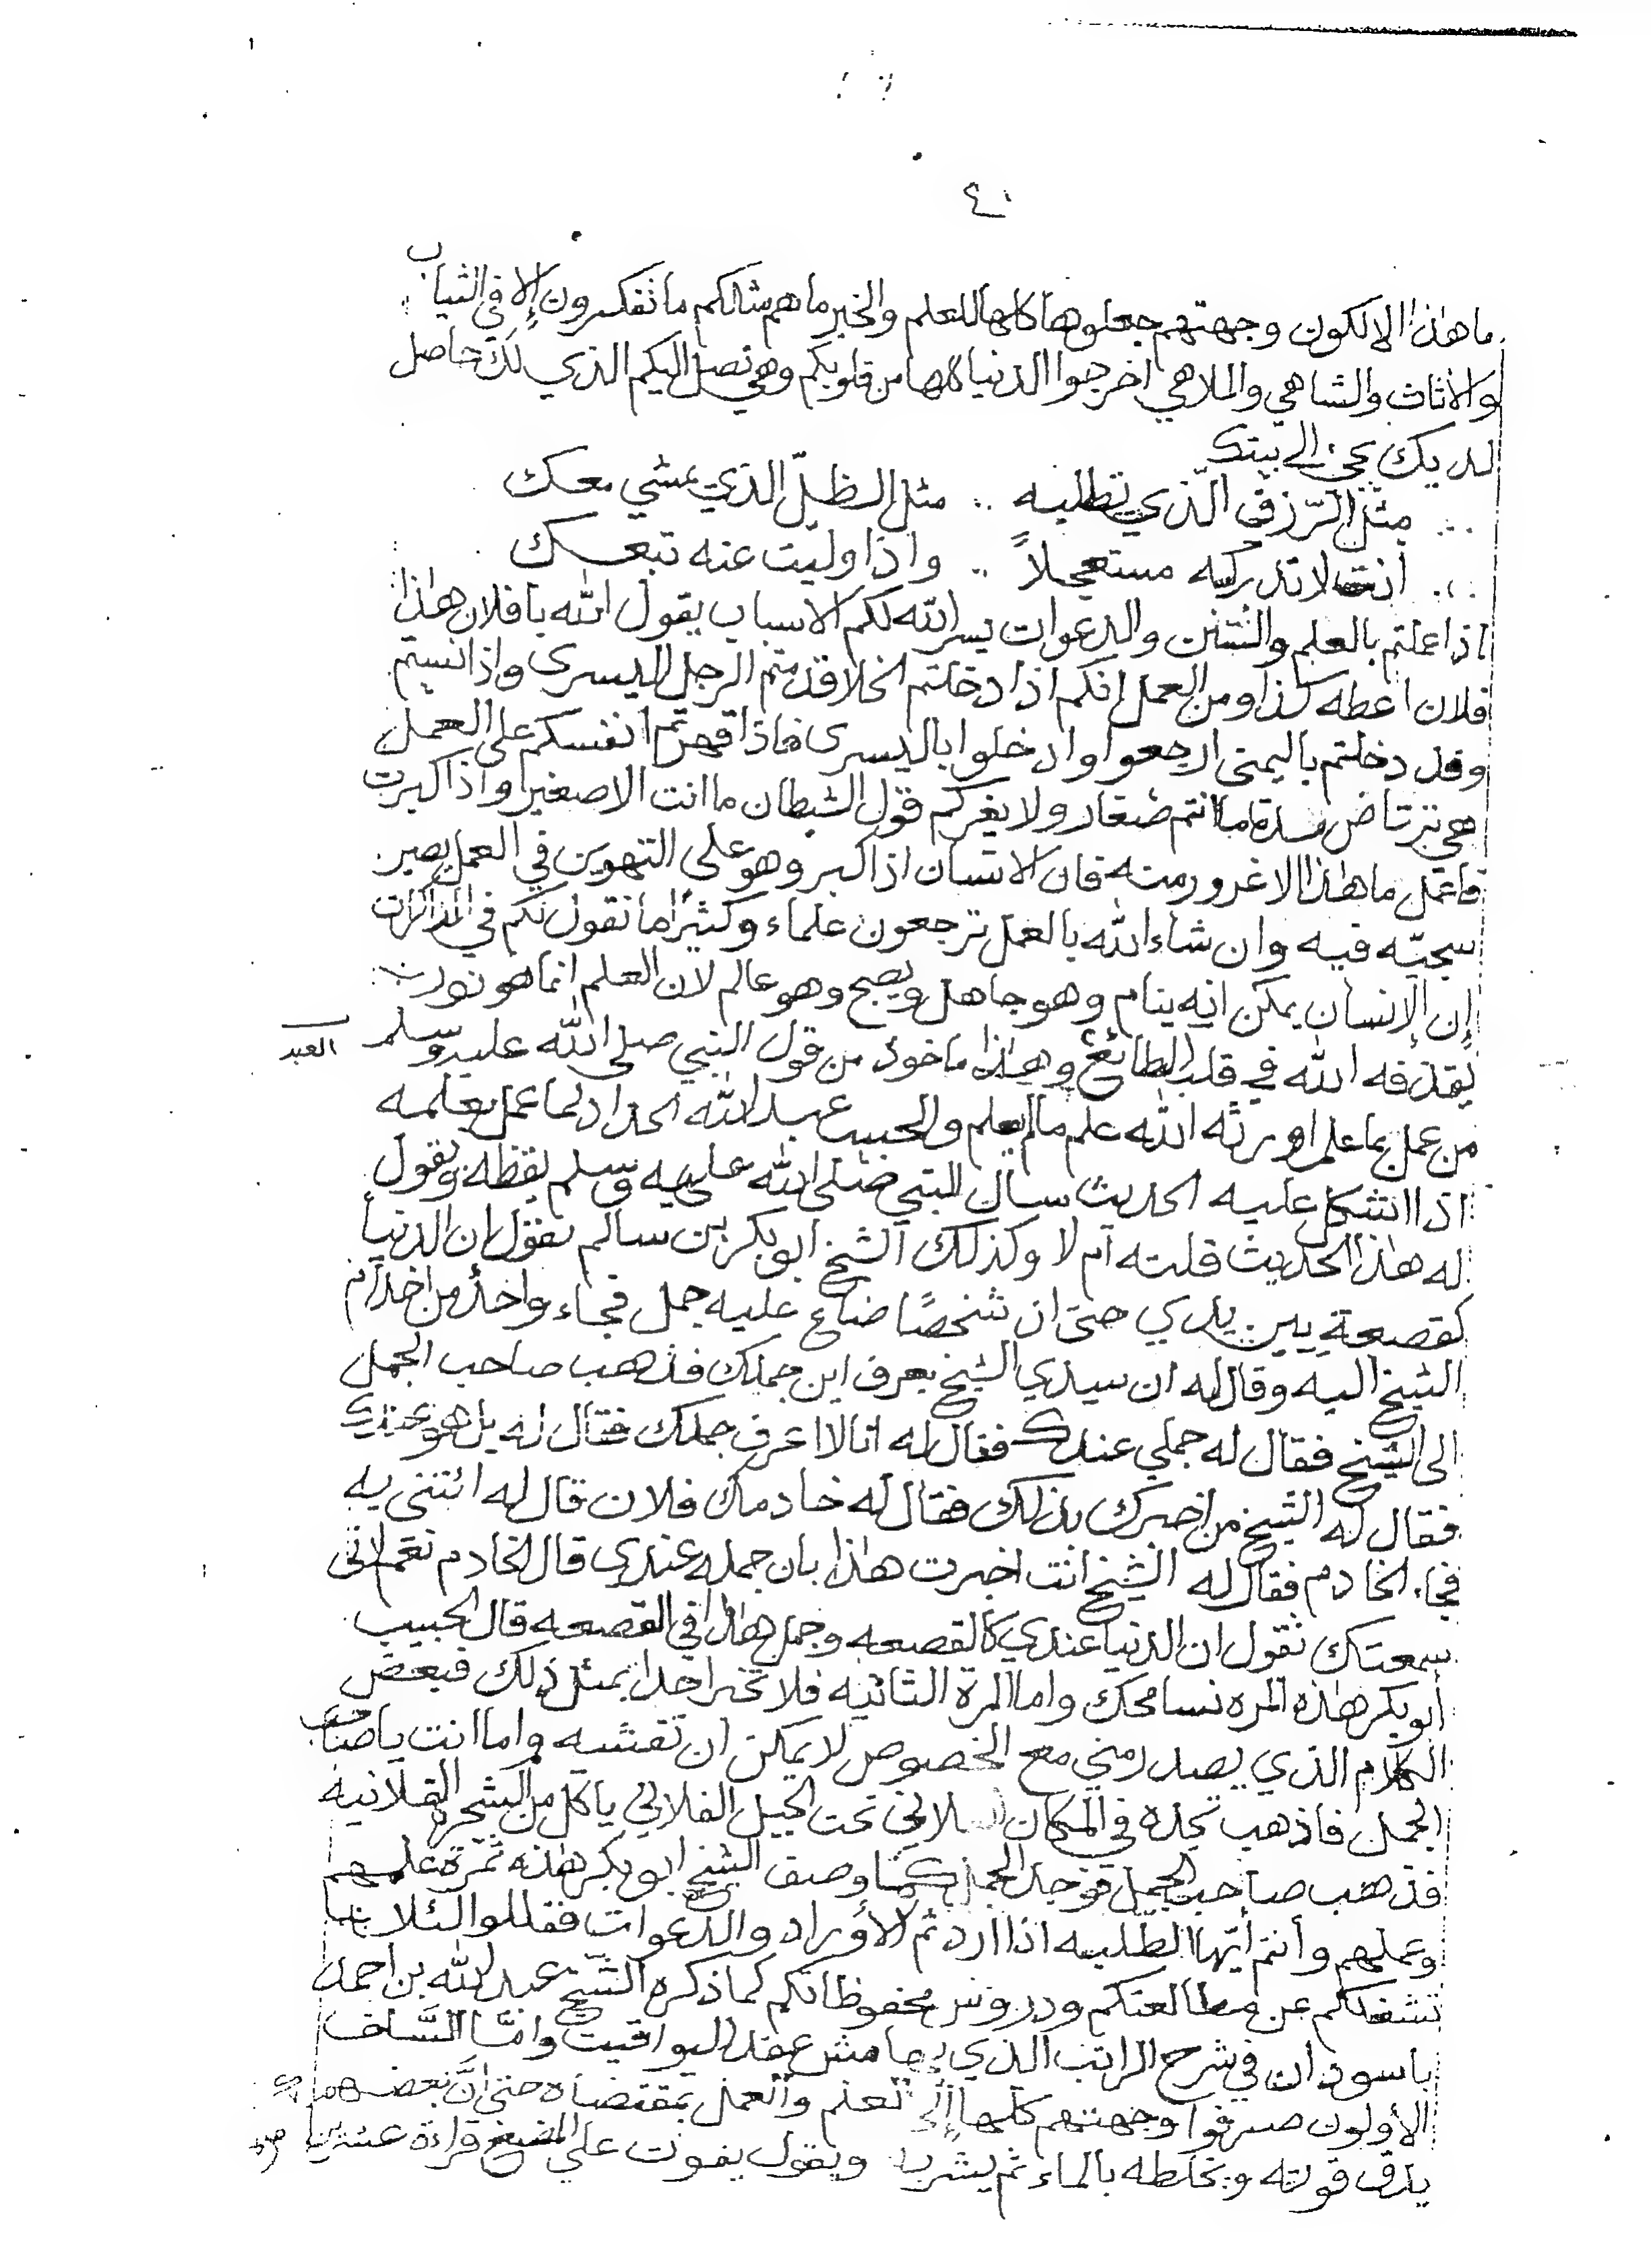 ٤٠
ما هذا إلا لكون وجهتهم جعلوها كلها للعلم والخير ما هم مثلكم ما تفكرون إلا في الثياب
والأثاث والشاهي والملاهي اخرجوا الدنيا كلها من قلوبكم وهي تصل إليكم الذي لك حاصل
لديك يجيء إلى بيتك
مثل الرّزق الّذي تطلبه .. مثل الظلّ الذي يمشي معك
أنت لا تدركه مستعجلاً .. واذا وليت عنه تبعك
اذا عملتم بالعلم والسنن والدعوات يسر الله لكم الاسباب يقول الله يا فلان هذا
فلان اعطه كذا ومن العمل انكم اذا دخلتم الخلا قدمتم الرجل اليسرى واذا نسيتم
وقد دخلتم باليمنى ارجعوا وادخلوا باليسرى فاذا قهرتم انفسكم على العمل
هي ترتاض مدة ما انتم صغار ولا يغركم قول الشيطان ما انت الا صغير واذا كبرت
فاعمل ما هذا الا غرور منه فان الانسان اذا كبر وهو على التهوين في العمل يصير
سجيّه فيه وان شاء الله بالعمل ترجعون علماء وكثيرًا ما نقول لكم في المذاكرات
إن الإنسان يمكن انه ينام وهو جاهل ويصبح وهو عالم لان العلم انما هو نور
يقذفه الله في قلب الطائع وهذا ماخوذ من قول النبي صلى الله عليه وسلم العبد
من عمل بما علم اورثه الله علم ما لم يعلم والحبيب عبد الله الحداد لما عمل بعلمه
اذا اشكل عليه الحديث سال النبي صلى الله عليه وسلم يقظة ويقول
له هذا الحديث قلته أم لا وكذلك الشيخ ابو بكر بن سالم يقول ان الدنيا
كقصعة بين يدي حتى ان شخصًا ضاع عليه جمل فجاء واحد من اخدام
الشيخ اليه وقال له ان سيدي الشيخ يعرف اين جملك فذهب صاحب الجمل
الى الشيخ فقال له جملي عندك فقال له انا لا اعرف جملك فقال له بل هو عندك
فقال له الشيخ من اخبرك بذلك فقال له خادمك فلان قال له ائتني به
فجاء الخادم فقال له الشيخ انت اخبرت هذا بان جمله عندي قال الخادم نعم لاني
سمعتك تقول ان الدنيا عندي كالقصعه وجمل هذا في القصعه قال الحبيب
أبو بكر هذه المره نسامحك واما المرة الثانيه فلا تخبر احدا بمثل ذلك فبعض
الكلام الذي يصدر مني مع الخصوص لا يمكن ان تفشيه واما انت يا صاحب
الجمل فاذهب تجده في المكان الفلاني تحت الجبل الفلاني ياكل من الشجرة الفلانيه
فذهب صاحب الجمل فوجد الجمل كما وصف الشيخ ابو بكر هذه ثمرة علمهم
وعملهم وأنتم أيها الطلبه اذا اردتم الأوراد والدعوات فقللوا لئلا
تشغلكم عن مطالعتكم ودروس محفوظاتكم كما ذكره الشيخ عبد الله بن احمد
باسودان في شرح الراتب الذي بهامش عقد اليواقيت وامّا السّلف
الأولون صرفوا وجهتهم كلها إلى العلم والعمل بمقتضاه حتى انّ بعضهم
يدق قوته ويخلطه بالماء ثم يشربه ويقول يفوت علي المضغ قراءة عشرين